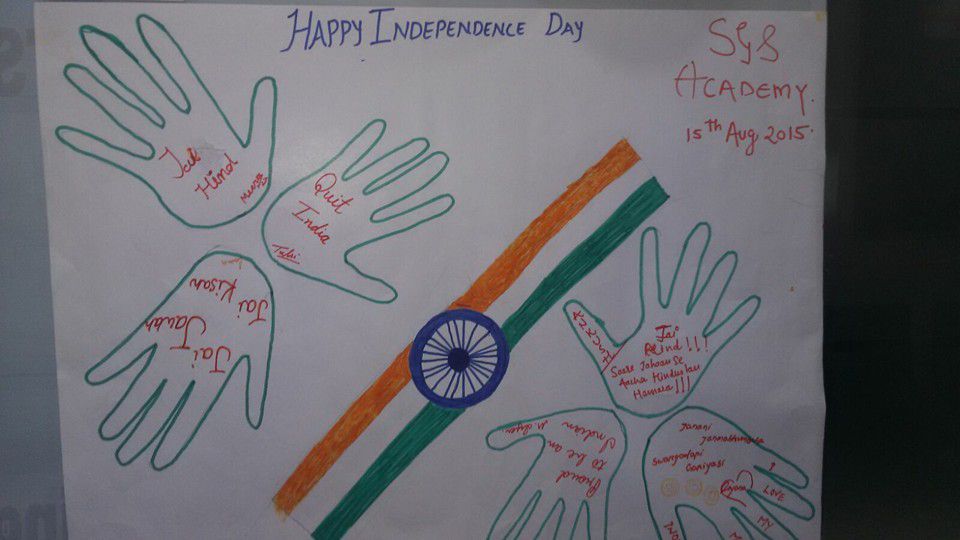 HAPPY INDEPENDENCE DAY
SGS
ACADEMY.
15th Aug 2015.
Jai
Hind
Quit
India
Tulsi
Jai
Jawan
Jai
Kisan
Jai
Hind!!!
Saare Jahaan Se
Aacha Hindustan
Hamara!!!
Proud
to be an
Indian
Janani
Janmabhumischa
Swargadapi
Gariyasi
I
LOVE
MY